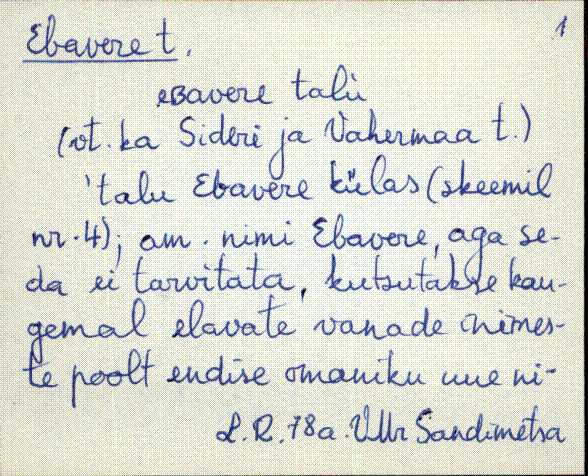 1
Ebavere t.
ebavere talu
(vt. ka Sideri ja Vahermaa t.)
'talu Ebavere külas (skeemil
nr. 4); am. nimi Ebavere, aga se-
da ei tarvitata, kutsutakse kau-
gemal elavate vanade inimes-
te poolt endise omaniku uue ni-
L.R. 78a. Sandimetsa